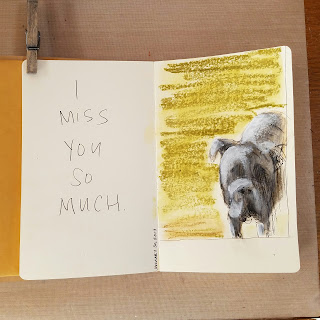 I
MISS
YOU
SO
MUCH.